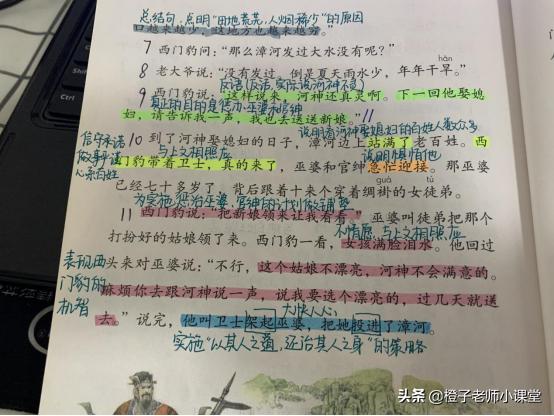 总结句,点明"田地荒芜,人烟稀少"的原因
口越来越少,这地方也越来越穷。"
7 西门豹问:"那么漳河发过大水没有呢?"
hàn
8 老大爷说:"没有发过。倒是夏天雨水少,年年干旱。"
反语(反话,实际说河神不灵)
9 西门豹说:"这样说来,河神还真灵啊。下一回他娶媳
真正的目的是惩办巫婆和官绅
妇,请告诉我一声,我也去送送新娘。"
说明看河神娶媳妇的百姓人数众多
信守承诺
10 到了河神娶媳妇的日子,漳河边上站满了老百姓。西
做事果断
与上文相照应
说明惧怕他
心系百姓
门豹带着卫士,真的来了,巫婆和官绅急忙迎接。那巫婆
guà tú
已经七十多岁了,背后跟着十来个穿着绸褂的女徒弟。
为实施惩治巫婆、官绅的计划做铺垫
11 西门豹说:"把新娘领来让我看看。"巫婆叫徒弟把那个
不情愿 与上文相照应
打扮好的姑娘领了来。西门豹一看,女孩满脸泪水。他回过
表现西门豹的机智
头来对巫婆说:"不行,这个姑娘不漂亮,河神不会满意的。
麻烦你去跟河神说一声,说我要选个漂亮的,过几天就送
大快人心
去。"说完,他叫卫士架起巫婆,把她投进了漳河。
实施"以其人之道,还治其人之身"的策略
头条 @橙子老师小课堂